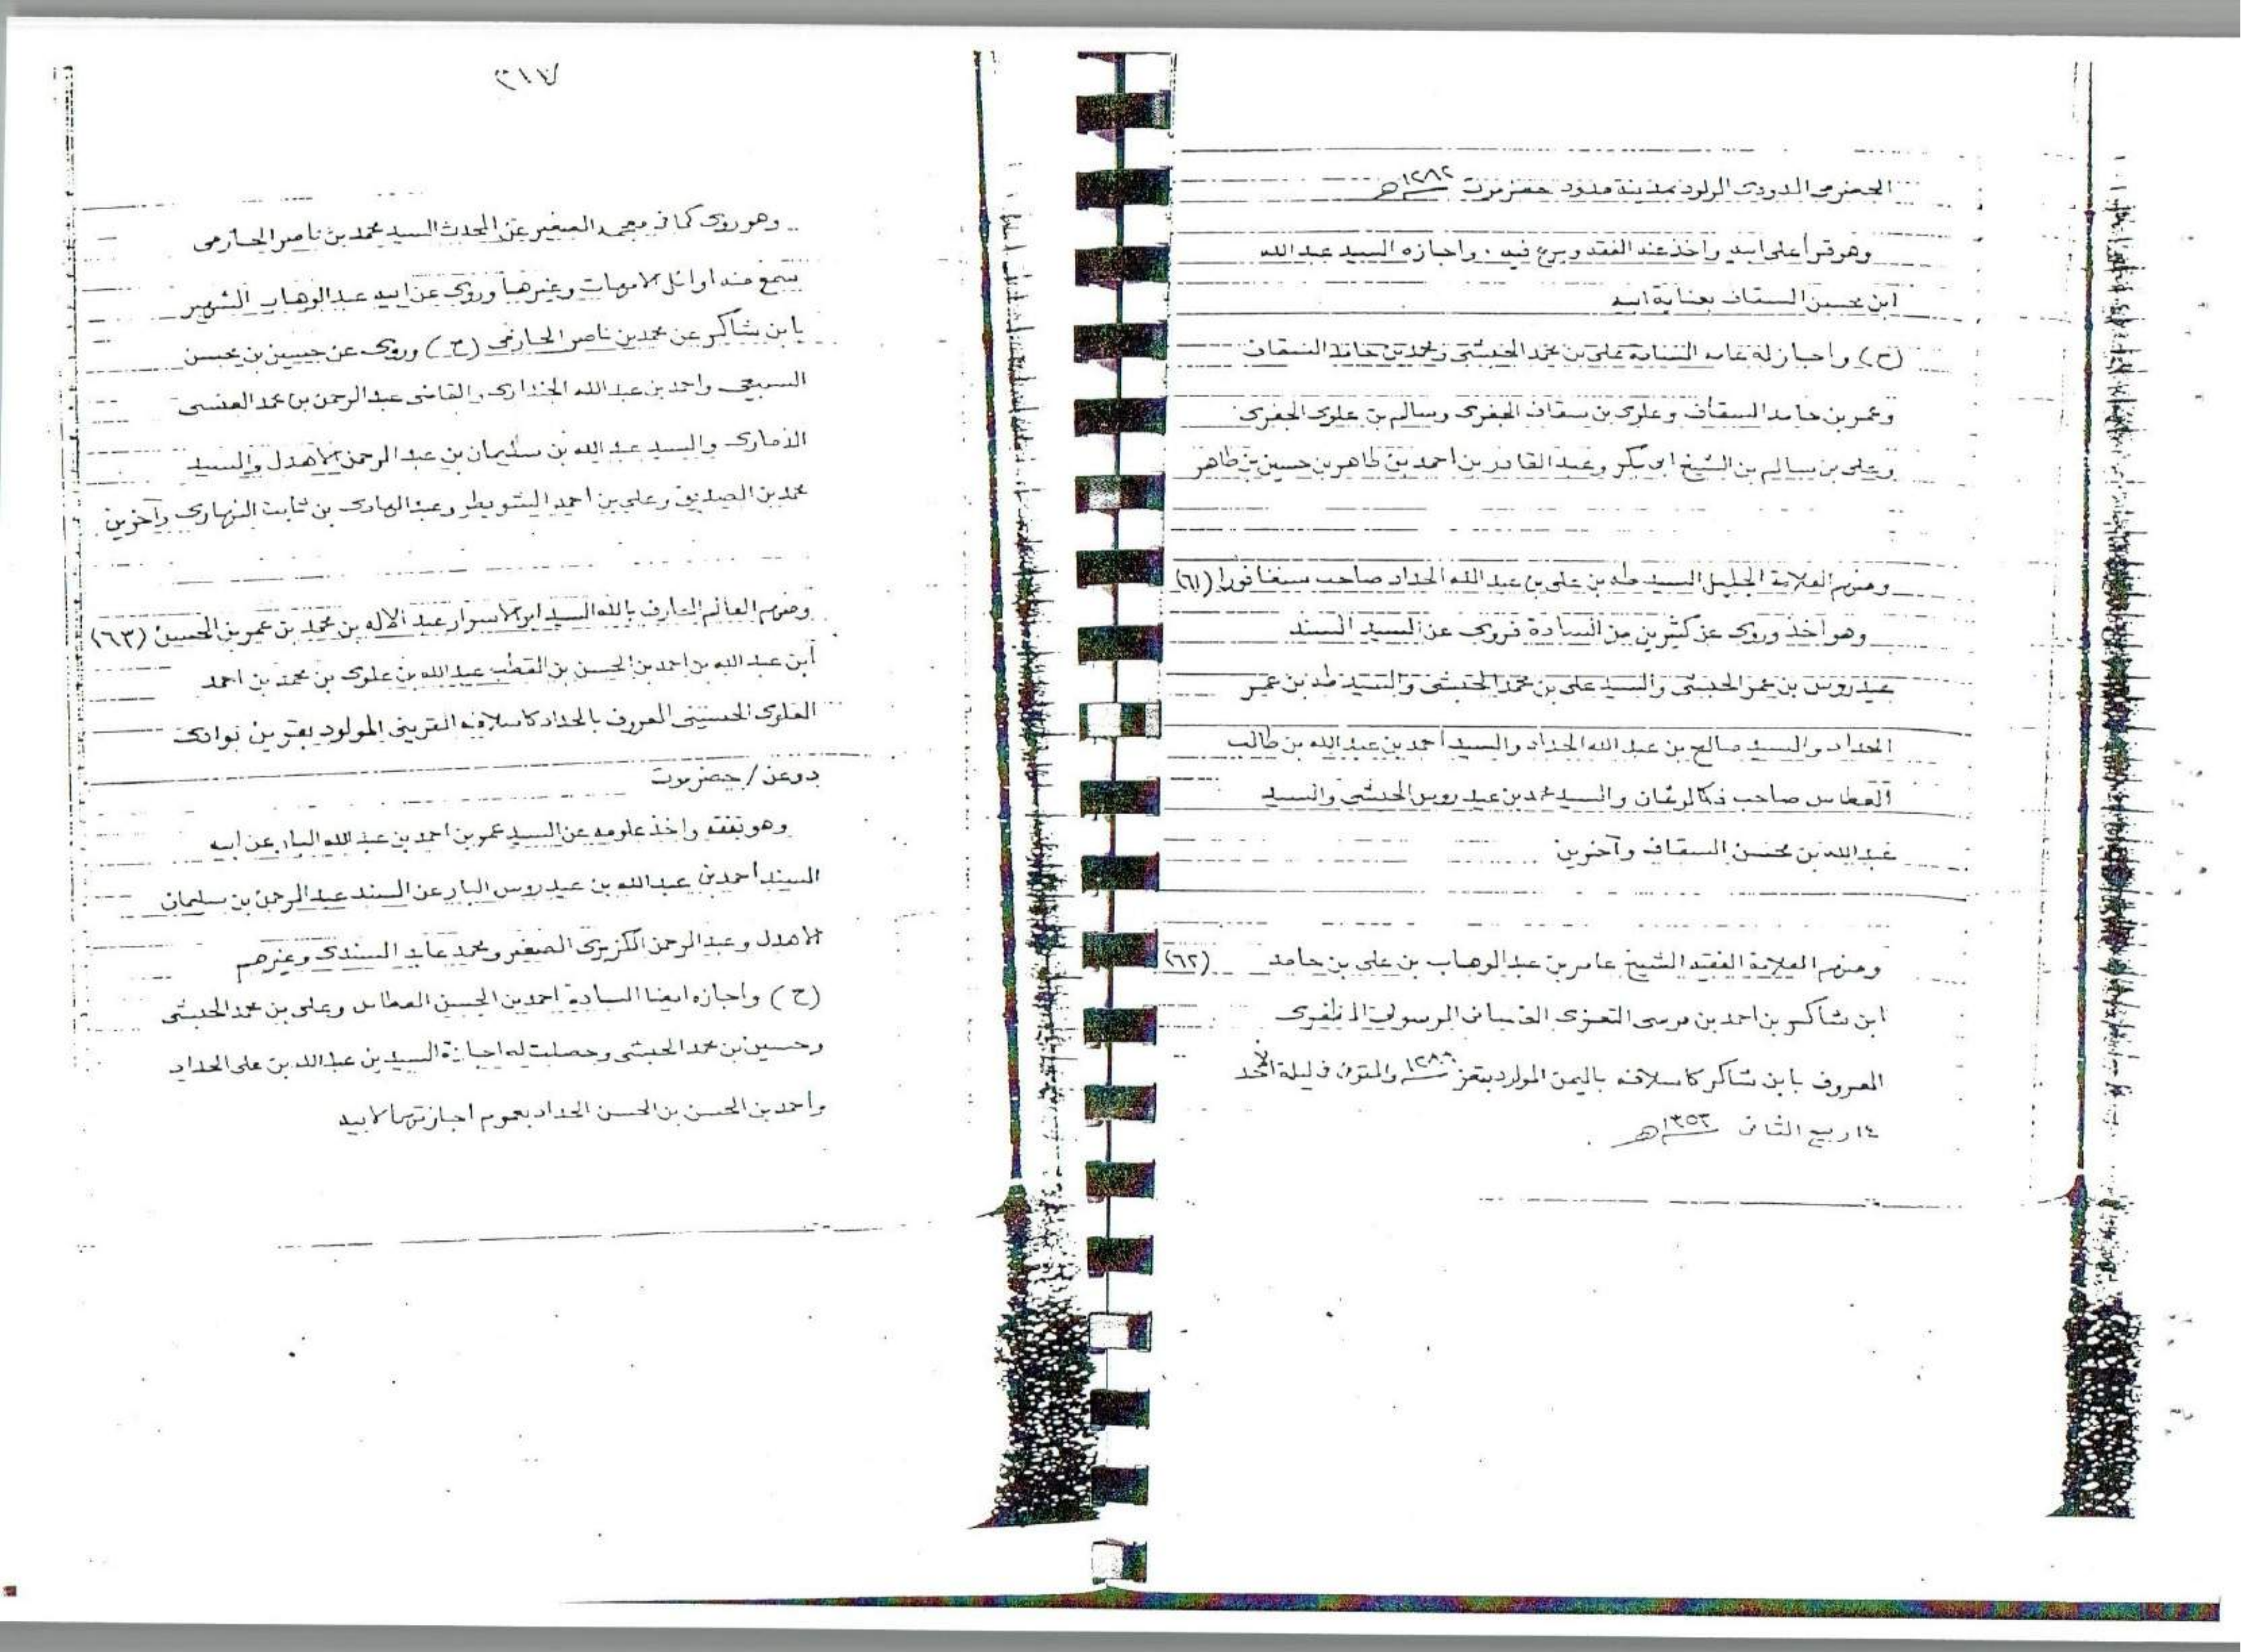 الحضرمي الدودي المولود بمدينة مدود حضرموت ١٢٨٢هـ
وهو قرأ على ابيه واخذ عنه الفقه وبرع فيه . واجازه السيد عبد الله
ابن محسن السقاف بعناية ابيه
(ح) واجاز له عامة السادة على بن محمد الحبشى ومحمد بن حامد السقاف
وعمر بن حامد السقاف وعلوى بن سقاف الجفرى وسالم بن علوى الجفرى
وعلى بن سالم بن الشيخ ابى بكر وعبد القادر بن احمد بن طاهر بن حسين بن طاهر
ومنهم العلامة الجليل السيد طه بن على بن عبد الله الحداد صاحب سنغافورا (٦١)
وهو أخذ وروى عن كثيرين من السادة فروى عن السيد المسند
عيدروس بن عمر الحبشى والسيد على بن محمد الحبشى والسيد طه بن عمر
الحداد والسيد صالح بن عبد الله الحداد والسيد أحمد بن عبد الله بن طالب
العطاس صاحب فكالوغان والسيد محمد بن عيدروس الحبشى والسيد
عبد الله بن محسن السقاف وآخرين
ومنهم العلامة الفقيه الشيخ عامر بن عبد الوهاب بن على بن حامد (٦٢)
ابن شاكر بن احمد بن موسى التعزى الغسانى الرسولى المظفرى
المعروف بابن شاكر كاسلافه باليمن المولود بتعز ١٢٨٨ والمتوفى فى ليلة الأحد
١٤ ربيع الثانى ١٣٥٣هـ
٣١٧
وهو روى كما فى معجمه الصغير عن المحدث السيد محمد بن ناصر الحازمى
سمع منه اوائل الامهات وغيرها وروى عن ابيه عبد الوهاب الشهير
بابن شاكر عن محمد بن ناصر الحازمى (ح) وروى عن حسين بن محسن
السبيعى واحمد بن عبد الله الجندارى والقاضى عبد الرحمن بن محمد العنسى
الذمارى والسيد عبد الله بن سليمان بن عبد الرحمن الاهدل والسيد
محمد بن الصديق وعلى بن احمد الشويطر وعبد الهادى بن ثابت النهارى وآخرين
ومنهم العالم العارف بالله السيد ابو الاسرار عبد الاله بن محمد بن عمر بن الحسين (٦٣)
أبن عبد الله بن احمد بن الحسن بن القطب عبد الله بن علوى بن محمد بن احمد
العلوى الحسينى المعروف بالحداد كاسلافه القرينى المولود بقرين نوانك
دوعن / حضرموت
وهو تفقه واخذ علومه عن السيد عمر بن احمد بن عبد الله البار عن ابيه
السيد أحمد بن عبد الله بن عيدروس البار عن المسند عبد الرحمن بن سليمان
الاهدل وعبد الرحمن الكزبرى الصغير ومحمد عابد السندى وغيرهم
(ح) واجازه ايضا السادة احمد بن الحسن العطاس وعلى بن محمد الحبشى
وحسين بن محمد الحبشى وحصلت له اجازة السيد بن عبد الله بن على الحداد
واحمد بن الحسن بن الحسن الحداد بعموم اجازتهما لابيه